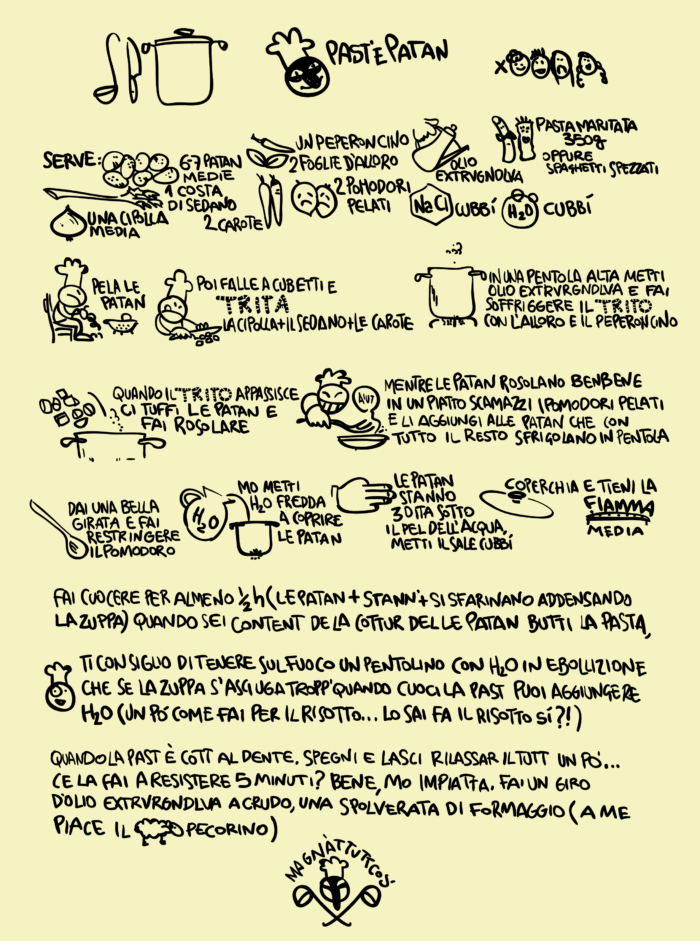 PAST'E PATAN
x
SERVE:
6-7 PATAN
MEDIE
1 COSTA
DI SEDANO
UNA CIPOLLA
MEDIA
2 CAROTE
UN PEPERONCINO
2 FOGLIE D'ALLORO
2 POMODORI
PELATI
OLIO
EXTRVRGNDLVA
NaCl CUBBÍ
H2O CUBBÍ
PASTA MARITATA
350g
OPPURE
SPAGHETTI SPEZZATI
PELA LE
PATAN
POI FALLE A CUBETTI E
TRITA
LA CIPOLLA+IL SEDANO+LE CAROTE
IN UNA PENTOLA ALTA METTI
OLIO EXTRVRGNDLVA E FAI
SOFFRIGGERE IL TRITO
CON L'ALLORO E IL PEPERONCINO
QUANDO IL TRITO APPASSISCE
CI TUFFI LE PATAN E
FAI ROSOLARE
MENTRE LE PATAN ROSOLANO BENBENE
IN UN PIATTO SCAMAZZI I POMODORI PELATI
E LI AGGIUNGI ALLE PATAN CHE CON
TUTTO IL RESTO SFRIGOLANO IN PENTOLA
DAI UNA BELLA
GIRATA E FAI
RESTRINGERE
IL POMODORO
H2O
MO METTI
H2O FREDDA
A COPRIRE
LE PATAN
LE PATAN
STANNO
3 DITA SOTTO
IL PEL DELL'ACQUA,
METTI IL SALE CUBBÍ
COPERCHIA E TIENI LA
FIAMMA
MEDIA
FAI CUOCERE PER ALMENO 1/2 h (LE PATAN + STANN' + SI SFARINANO ADDENSANDO
LA ZUPPA) QUANDO SEI CONTENT DE LA COTTUR DELLE PATAN BUTTI LA PASTA,
TI CONSIGLIO DI TENERE SUL FUOCO UN PENTOLINO CON H2O IN EBOLLIZIONE
CHE SE LA ZUPPA S'ASCIUGA TROPP' QUANDO CUOCI LA PAST PUOI AGGIUNGERE
H2O (UN PO' COME FAI PER IL RISOTTO... LO SAI FA IL RISOTTO SÍ?!)
QUANDO LA PAST È COTT AL DENTE, SPEGNI E LASCI RILASSAR IL TUTT UN PO'...
CE LA FAI A RESISTERE 5 MINUTI? BENE, MO IMPIATTA, FAI UN GIRO
D'OLIO EXTRVRGNDLVA A CRUDO, UNA SPOLVERATA DI FORMAGGIO (A ME
PIACE IL PECORINO)
MAGNÀTTUTTCOS'